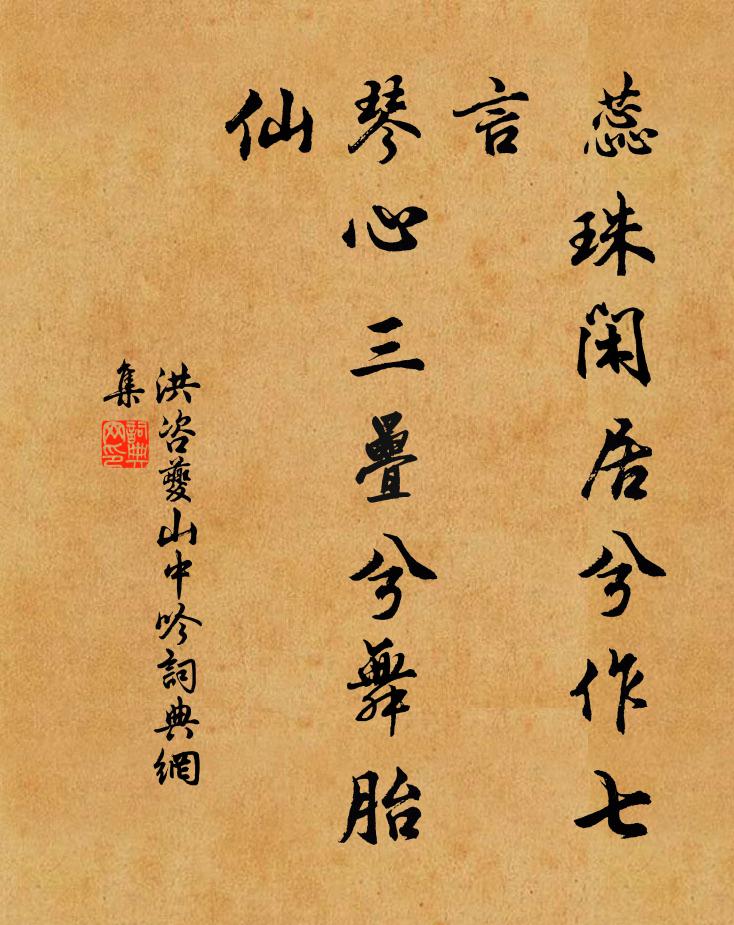 蕊珠閑居兮作七
言
琴心三疊兮舞胎
仙
洪咨夔山中吟詞典網
集
詞典
网印